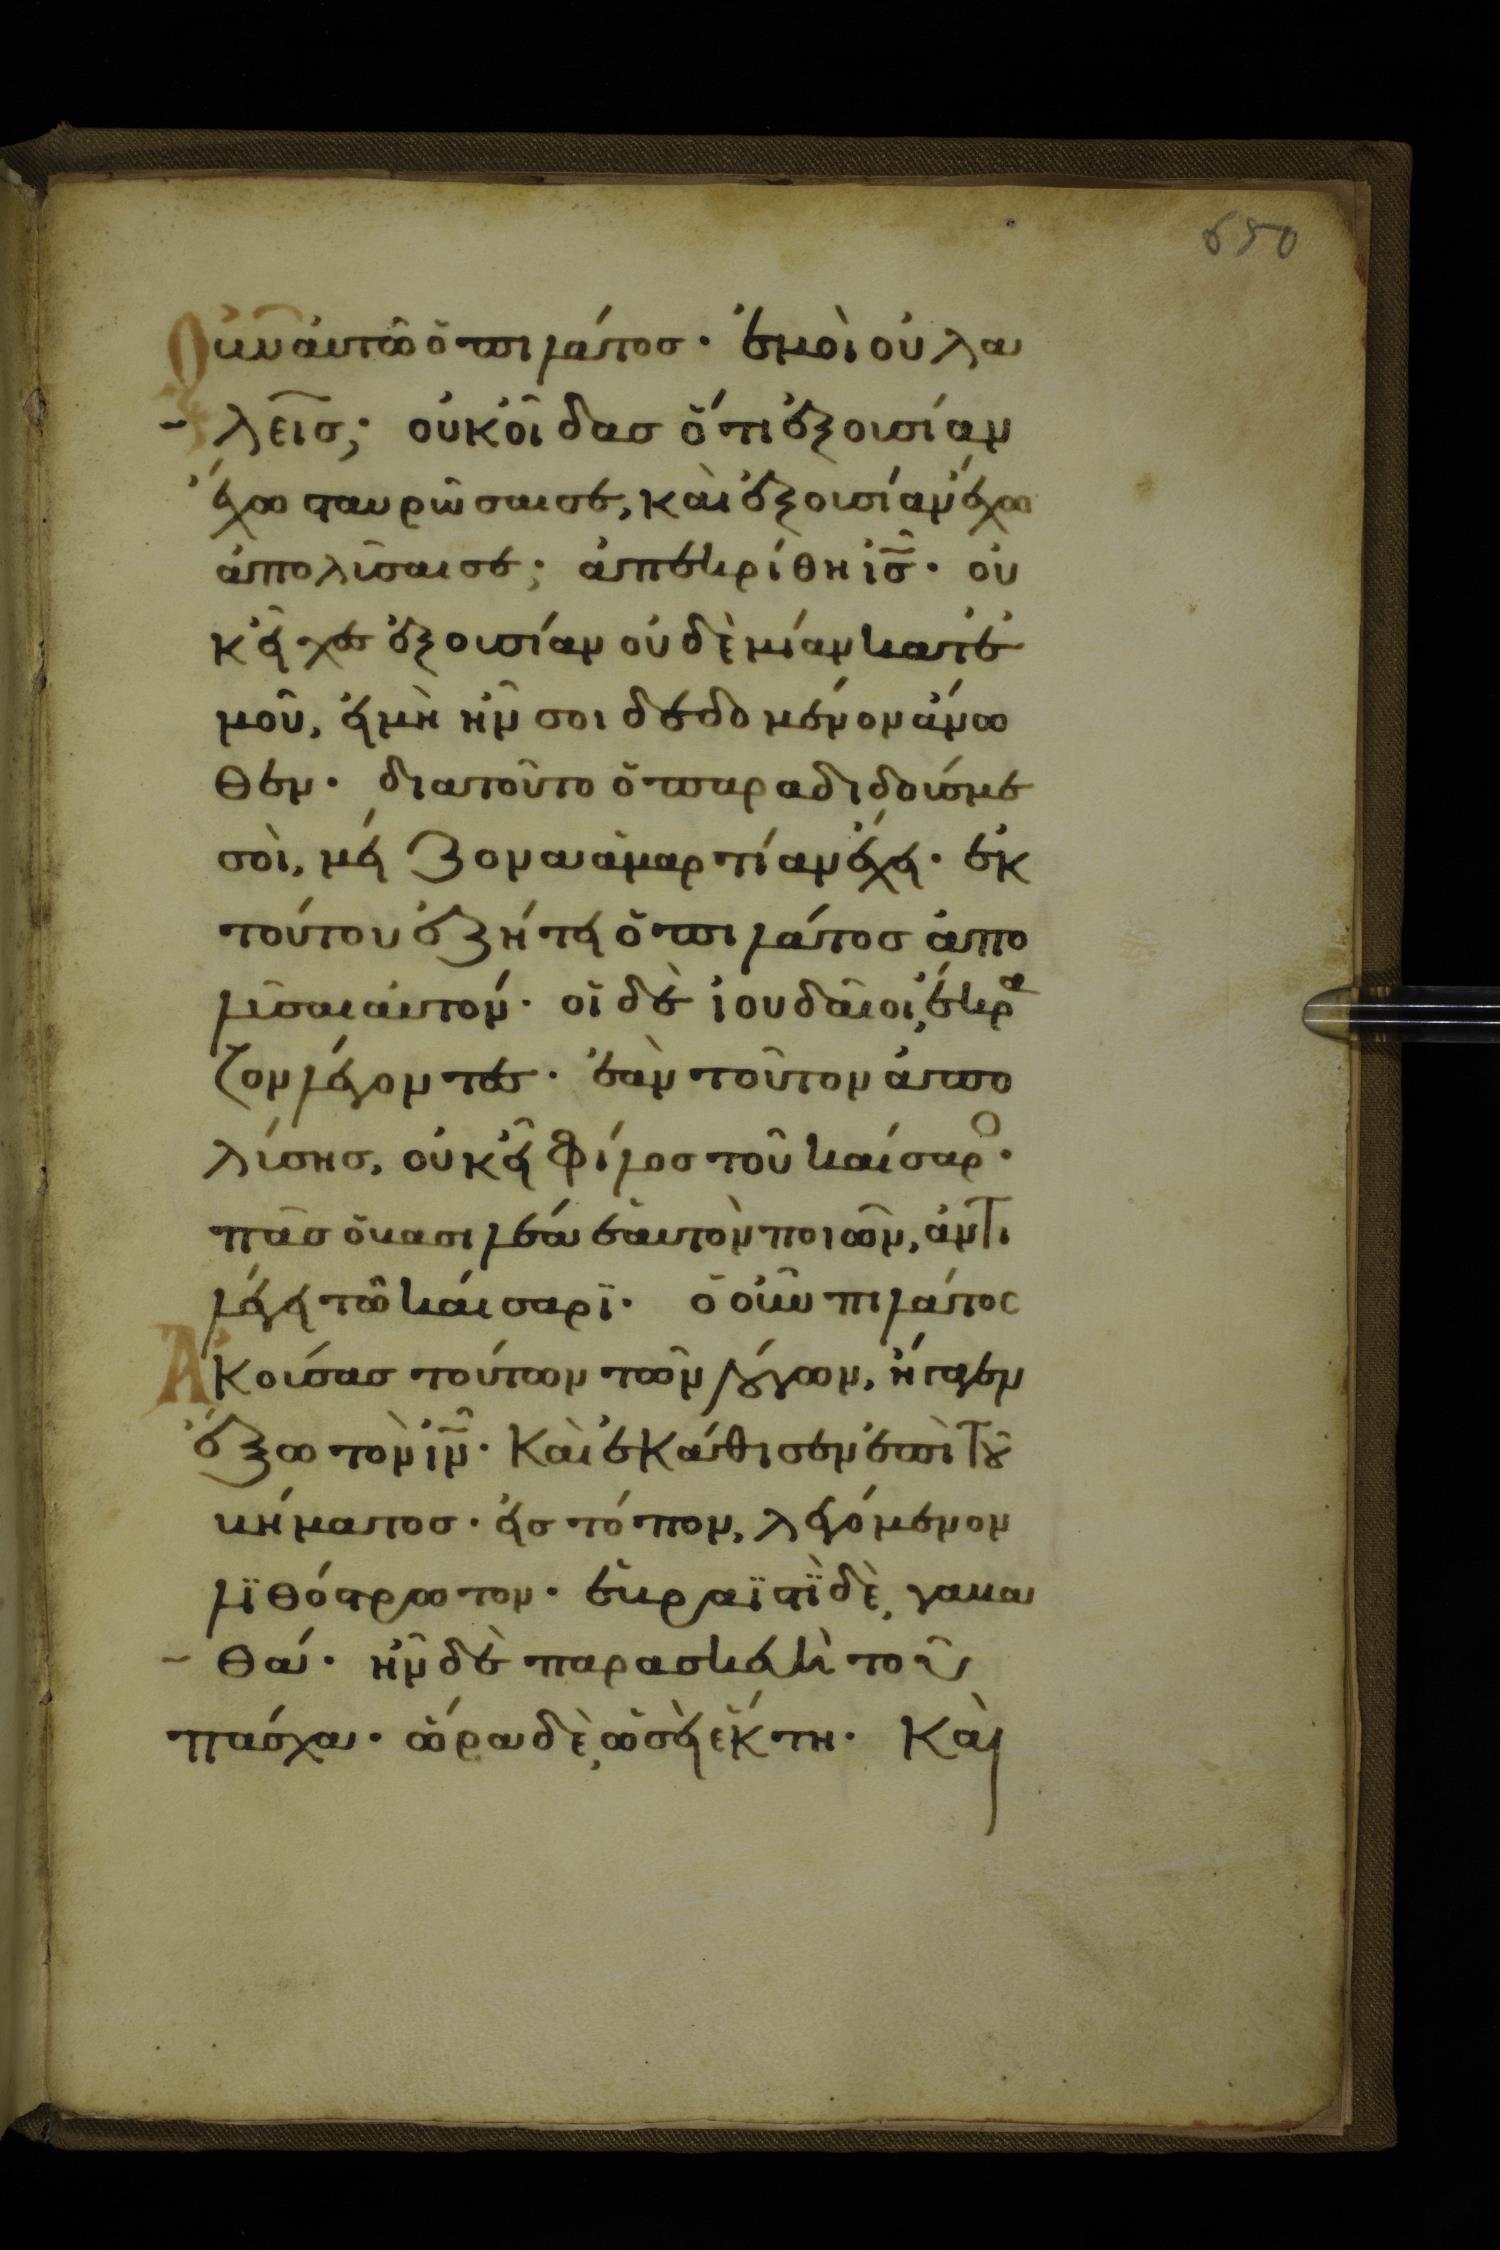 650
Οὖν αὐτῶ ὁ πιλάτοσ · ἐμοὶ οὐ λα
λεῖσ; οὐκ οἶδασ ὅτι ἐξουσίαν
ἔχω σταυρῶσαι σέ, καὶ ἐξουσίαν ἔχω
ἀπολῦσαι σέ; ἀπεκρίθη ἰ̅σ̅ · οὐ
κ εἶχεσ ἐξουσίαν οὐδὲ μίαν κατ' ἐ
μοῦ, εἰ μὴ ἦν σοι δεδομένον ἄνω
θέν · διατοῦτο ὁ παραδιδούσμε
σοὶ, μείζονα ἁμαρτίαν ἔχει · ἐκ
τούτου ἐζήτει ὁ πιλάτοσ ἀπο
λῦσαι αὐτόν · οἱ δὲ ἰουδαῖοι, ἔκρα
ζον λέγοντεσ · ἐὰν τοῦτον ἀπο
λύσησ, οὐκ εἶ φίλοσ τοῦ καίσαρο ·
πᾶσ ὁ βασιλέα ἑαυτὸν ποιῶν, ἀντι
λέγει τῶ καίσαρϊ · ὁ οὖν πιλάτοσ
Ἀκούσασ τούτων τῶν λόγων, ἤγαγεν
ἔξω τὸν ἰ̅ν̅ · Καὶ ἐκάθισεν ἐπὶ τοῦ
βήματοσ · εἰσ τόπον, λεγόμενον
λϊθόστρωτον · ἑβραϊστϊ δὲ, γαβα
θά · ἦν δὲ παρασκευὴ τοῦ
πάσχα · ὥρα δὲ, ὡσεὶ ἕκτη · Καὶ